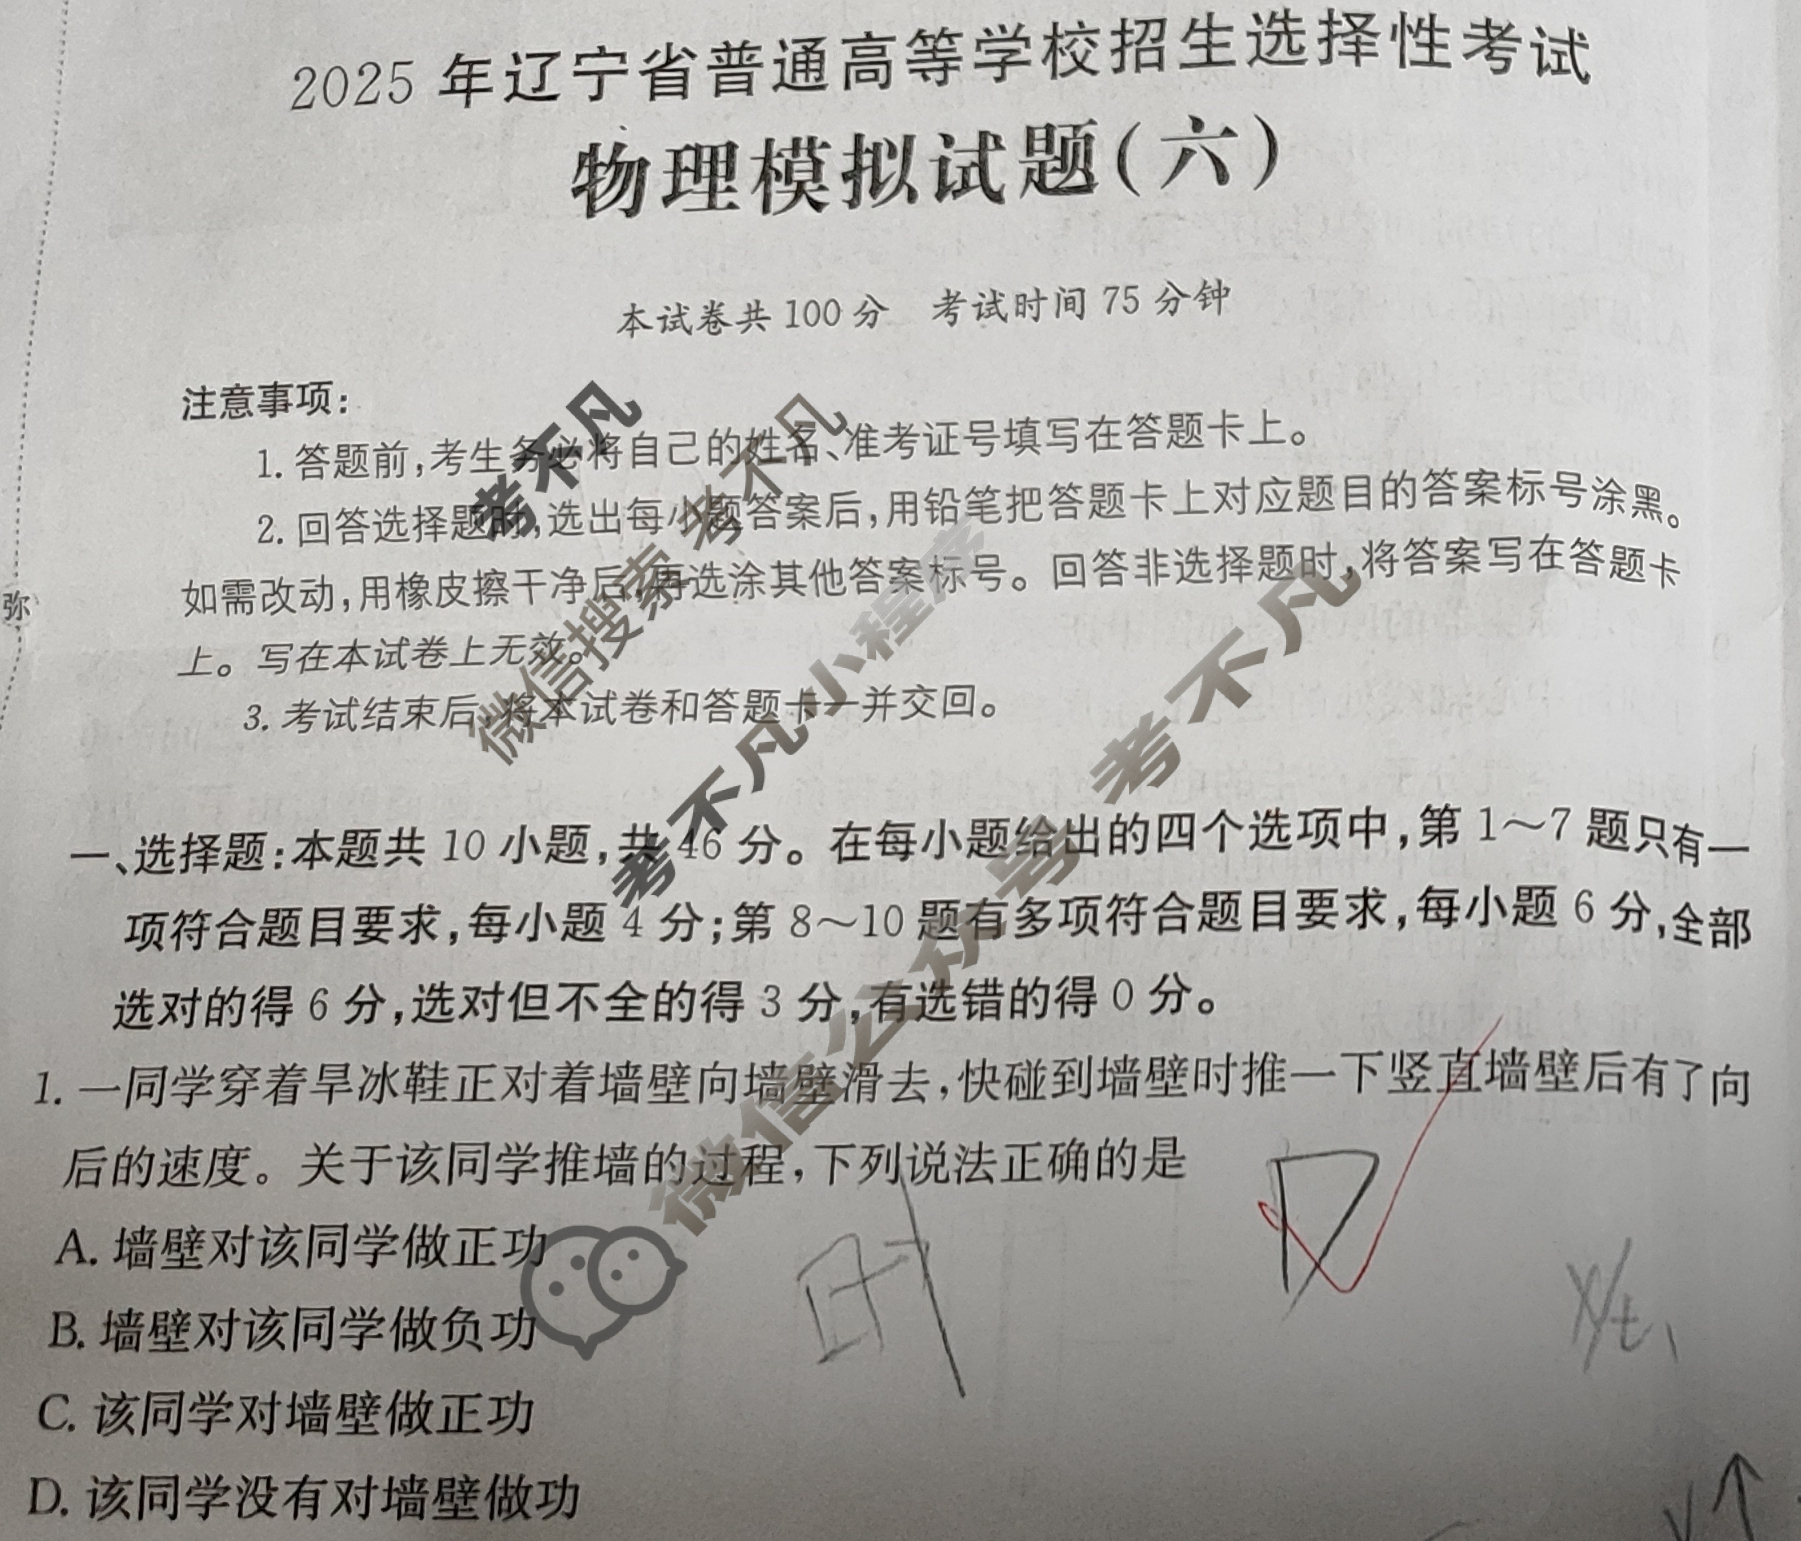 2025 年辽宁省普通高等学校招生选择性考试
物理模拟试题(六)
本试卷共 100 分 考试时间 75 分钟
注意事项:
1. 答题前,考生务必将自己的姓名、准考证号填写在答题卡上。
2. 回答选择题时,选出每小题答案后,用铅笔把答题卡上对应题目的答案标号涂黑。
如需改动,用橡皮擦干净后,再选涂其他答案标号。回答非选择题时,将答案写在答题卡
上。写在本试卷上无效。
3. 考试结束后,将本试卷和答题卡一并交回。
弥
一、选择题:本题共 10 小题,共 46 分。在每小题给出的四个选项中,第 1～7 题只有一
项符合题目要求,每小题 4 分;第 8～10 题有多项符合题目要求,每小题 6 分,全部
选对的得 6 分,选对但不全的得 3 分,有选错的得 0 分。
1. 一同学穿着旱冰鞋正对着墙壁向墙壁滑去,快碰到墙壁时推一下竖直墙壁后有了向
后的速度。关于该同学推墙的过程,下列说法正确的是
D
A. 墙壁对该同学做正功
B. 墙壁对该同学做负功
C. 该同学对墙壁做正功
D. 该同学没有对墙壁做功
考不凡
微信搜索 考不凡
考不凡小程序
微信公众号 考不凡